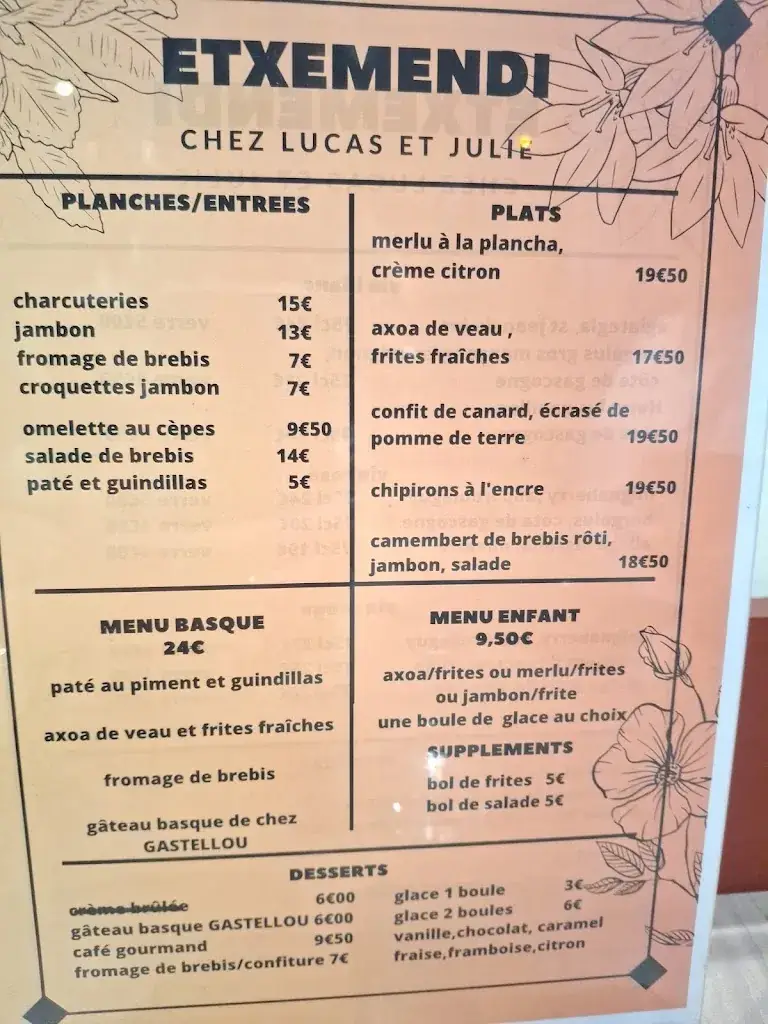 ETXEMENDI
CHEZ LUCAS ET JULIE
PLANCHES/ENTREES
charcuteries 15€
jambon 13€
fromage de brebis 7€
croquettes jambon 7€
omelette au cèpes 9€50
salade de brebis 14€
paté et guindillas 5€
PLATS
merlu à la plancha,
crème citron 19€50
axoa de veau ,
frites fraîches 17€50
confit de canard, écrasé de
pomme de terre 19€50
chipirons à l'encre 19€50
camembert de brebis rôti,
jambon, salade 18€50
MENU BASQUE
24€
paté au piment et guindillas
axoa de veau et frites fraîches
fromage de brebis
gâteau basque de chez
GASTELLOU
MENU ENFANT
9,50€
axoa/frites ou merlu/frites
ou jambon/frite
une boule de glace au choix
SUPPLEMENTS
bol de frites 5€
bol de salade 5€
DESSERTS
crème brûlée 6€00
gâteau basque GASTELLOU 6€00
café gourmand 9€50
fromage de brebis/confiture 7€
glace 1 boule 3€
glace 2 boules 6€
vanille,chocolat, caramel
fraise,framboise,citron